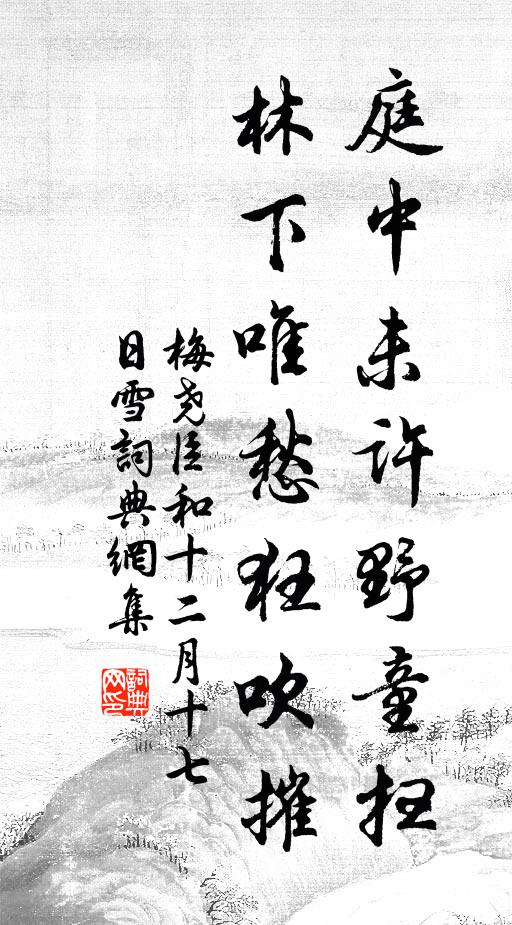 庭中未許野童扫
林下唯愁狂吹摧
梅尧臣和十二月十七
日雪詞典網集
詞典
网印